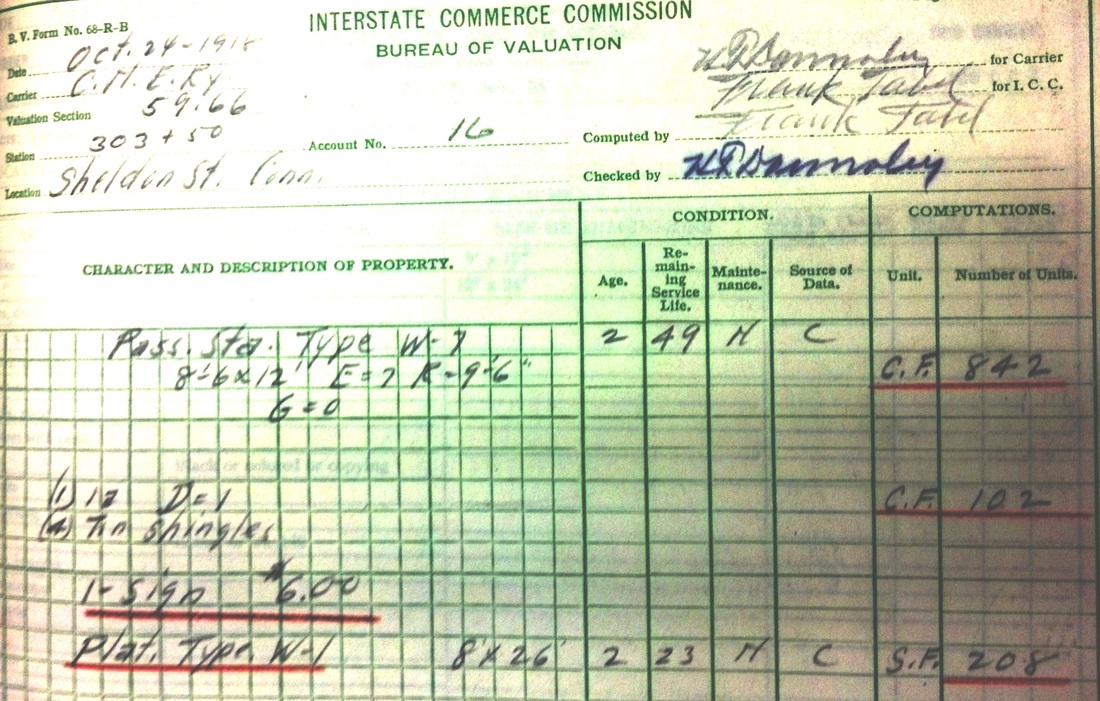 INTERSTATE COMMERCE COMMISSION
BUREAU OF VALUATION
B. V. Form No. 68-R-B
Date Oct. 24-1918
Carrier C.M.E. Ry
Valuation Section 59.66
Station 303+50
Location Sheldon St. Conn.
Account No. 16
for Carrier
Frank Tabel for I. C. C.
Computed by Frank Tabel
Checked by
CHARACTER AND DESCRIPTION OF PROPERTY.
CONDITION.
COMPUTATIONS.
Age.
Re-
main-
ing
Service
Life.
Mainte-
nance.
Source of
Data.
Unit.
Number of Units.
Pass. Sta. Type W-7 2 49 N C
8'-6x12' E=7 R-9'-6" C.F. 842
G=0
(1) 12 D=1 C.F. 102
(4) Tin Shingles
1-Sign $6.00
Plat. Type W-1 8'x26' 2 23 N C S.F. 208